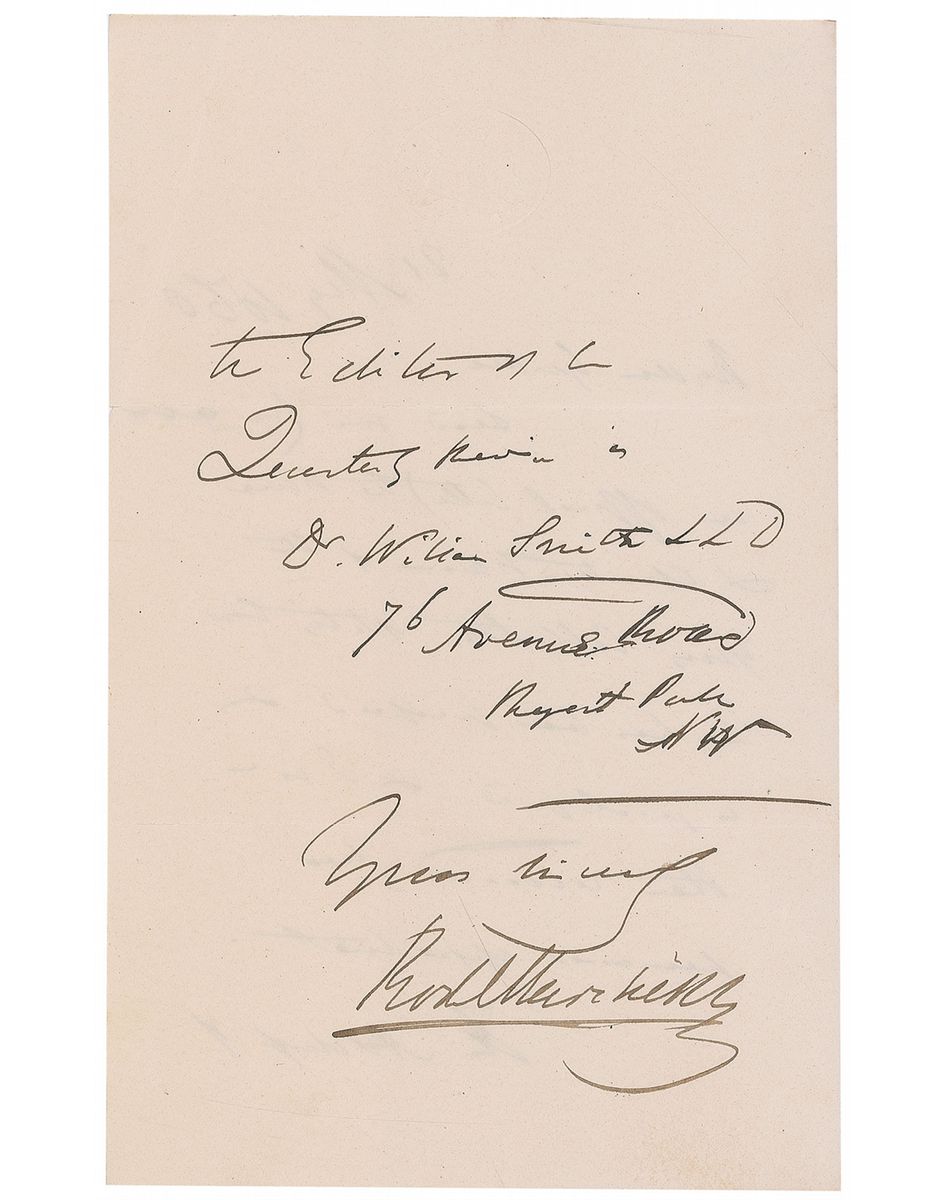 the Editor of the
Quarterly Review is
Dr. William Smith LLD
76 Avenue Road
Regent Park
NW
Yours sincerely
Rod Murchison